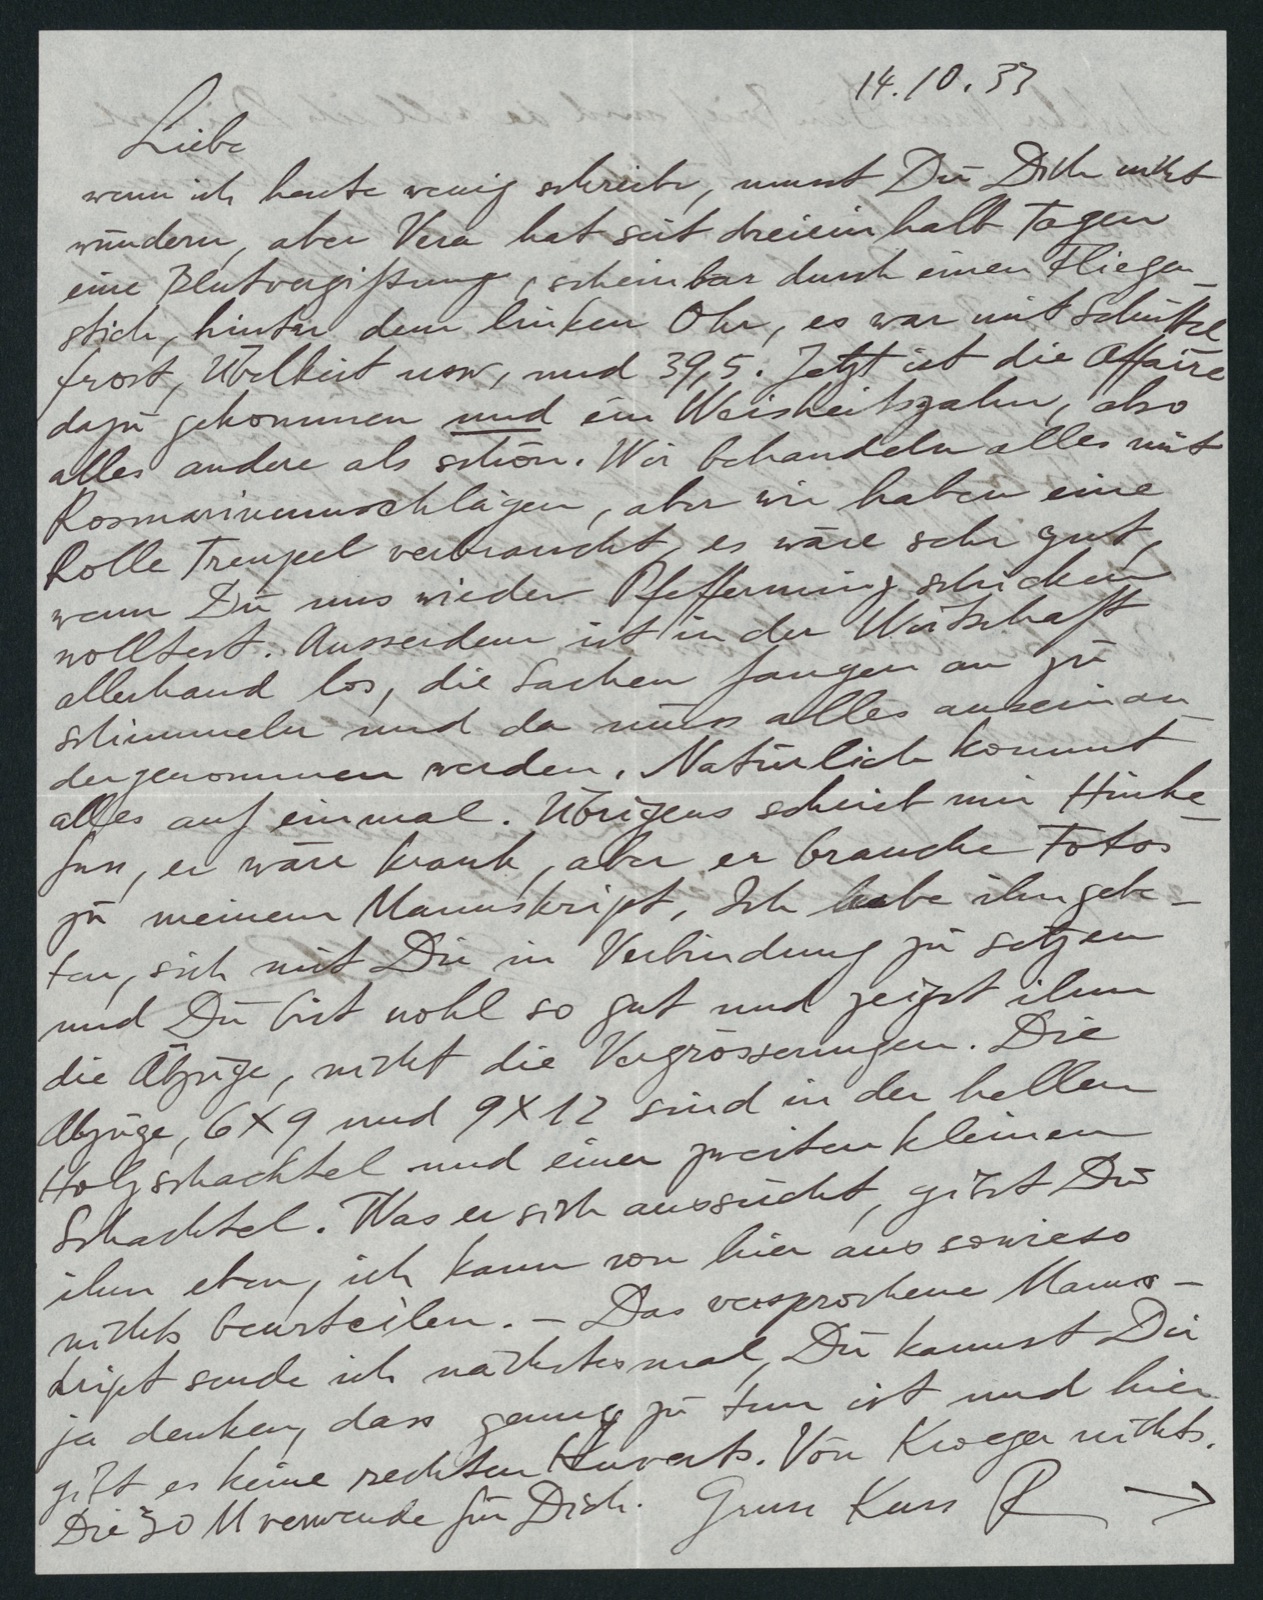 14.10.33
Liebe
wenn ich heute wenig schreibe, musst Du Dich nicht
wundern, aber Vera hat seit dreieinhalb Tagen
eine Blutvergiftung, scheinbar durch einen Fliegen-
stich, hinter dem linken Ohr, es war mit Schüttel
frost, Übelkeit usw, und 39,5. Jetzt ist die Affaire
dazu gekommen und ein Weisheitszahn, also
alles andere als schön. Wir behandeln alles mit
Rosmarinumschlägen, aber wir haben eine
Rolle Treupel verbraucht, es wäre sehr gut,
wenn Du uns wieder Pfefferming schicken
wolltest. Ausserdem ist in der Wirtschaft
allerhand los, die Sachen fangen an zu
schimmeln und da muss alles auseinan-
dergenommen werden. Natürlich kommt
alles auf einmal. Übrigens schrieb mir Hinke-
fuss, er wäre krank, aber er brauche Fotos
zu meinem Manuskript, Ich habe ihn gebe-
ten, sich mit Dir in Verbindung zu setzen
und Du bist wohl so gut und zeigst ihm
die Abzüge, nicht die Vergrösserungen. Die
Abzüge, 6X9 und 9X12 sind in der hellen
Holzschachtel und einer zweiten kleinen
Schachtel. Was er sich aussucht, gibst Du
ihm eben, ich kann von hier aus sowieso
nichts beurteilen. – Das versprochene Manus-
kript sende ich nächstesmal, Du kannst Dir
ja denken, dass genug zu tun ist und hier
gibt es keine rechten Kuverts. Von Kroeger nichts.
Die 30 M verwende für Dich. Gruss Kuss R →